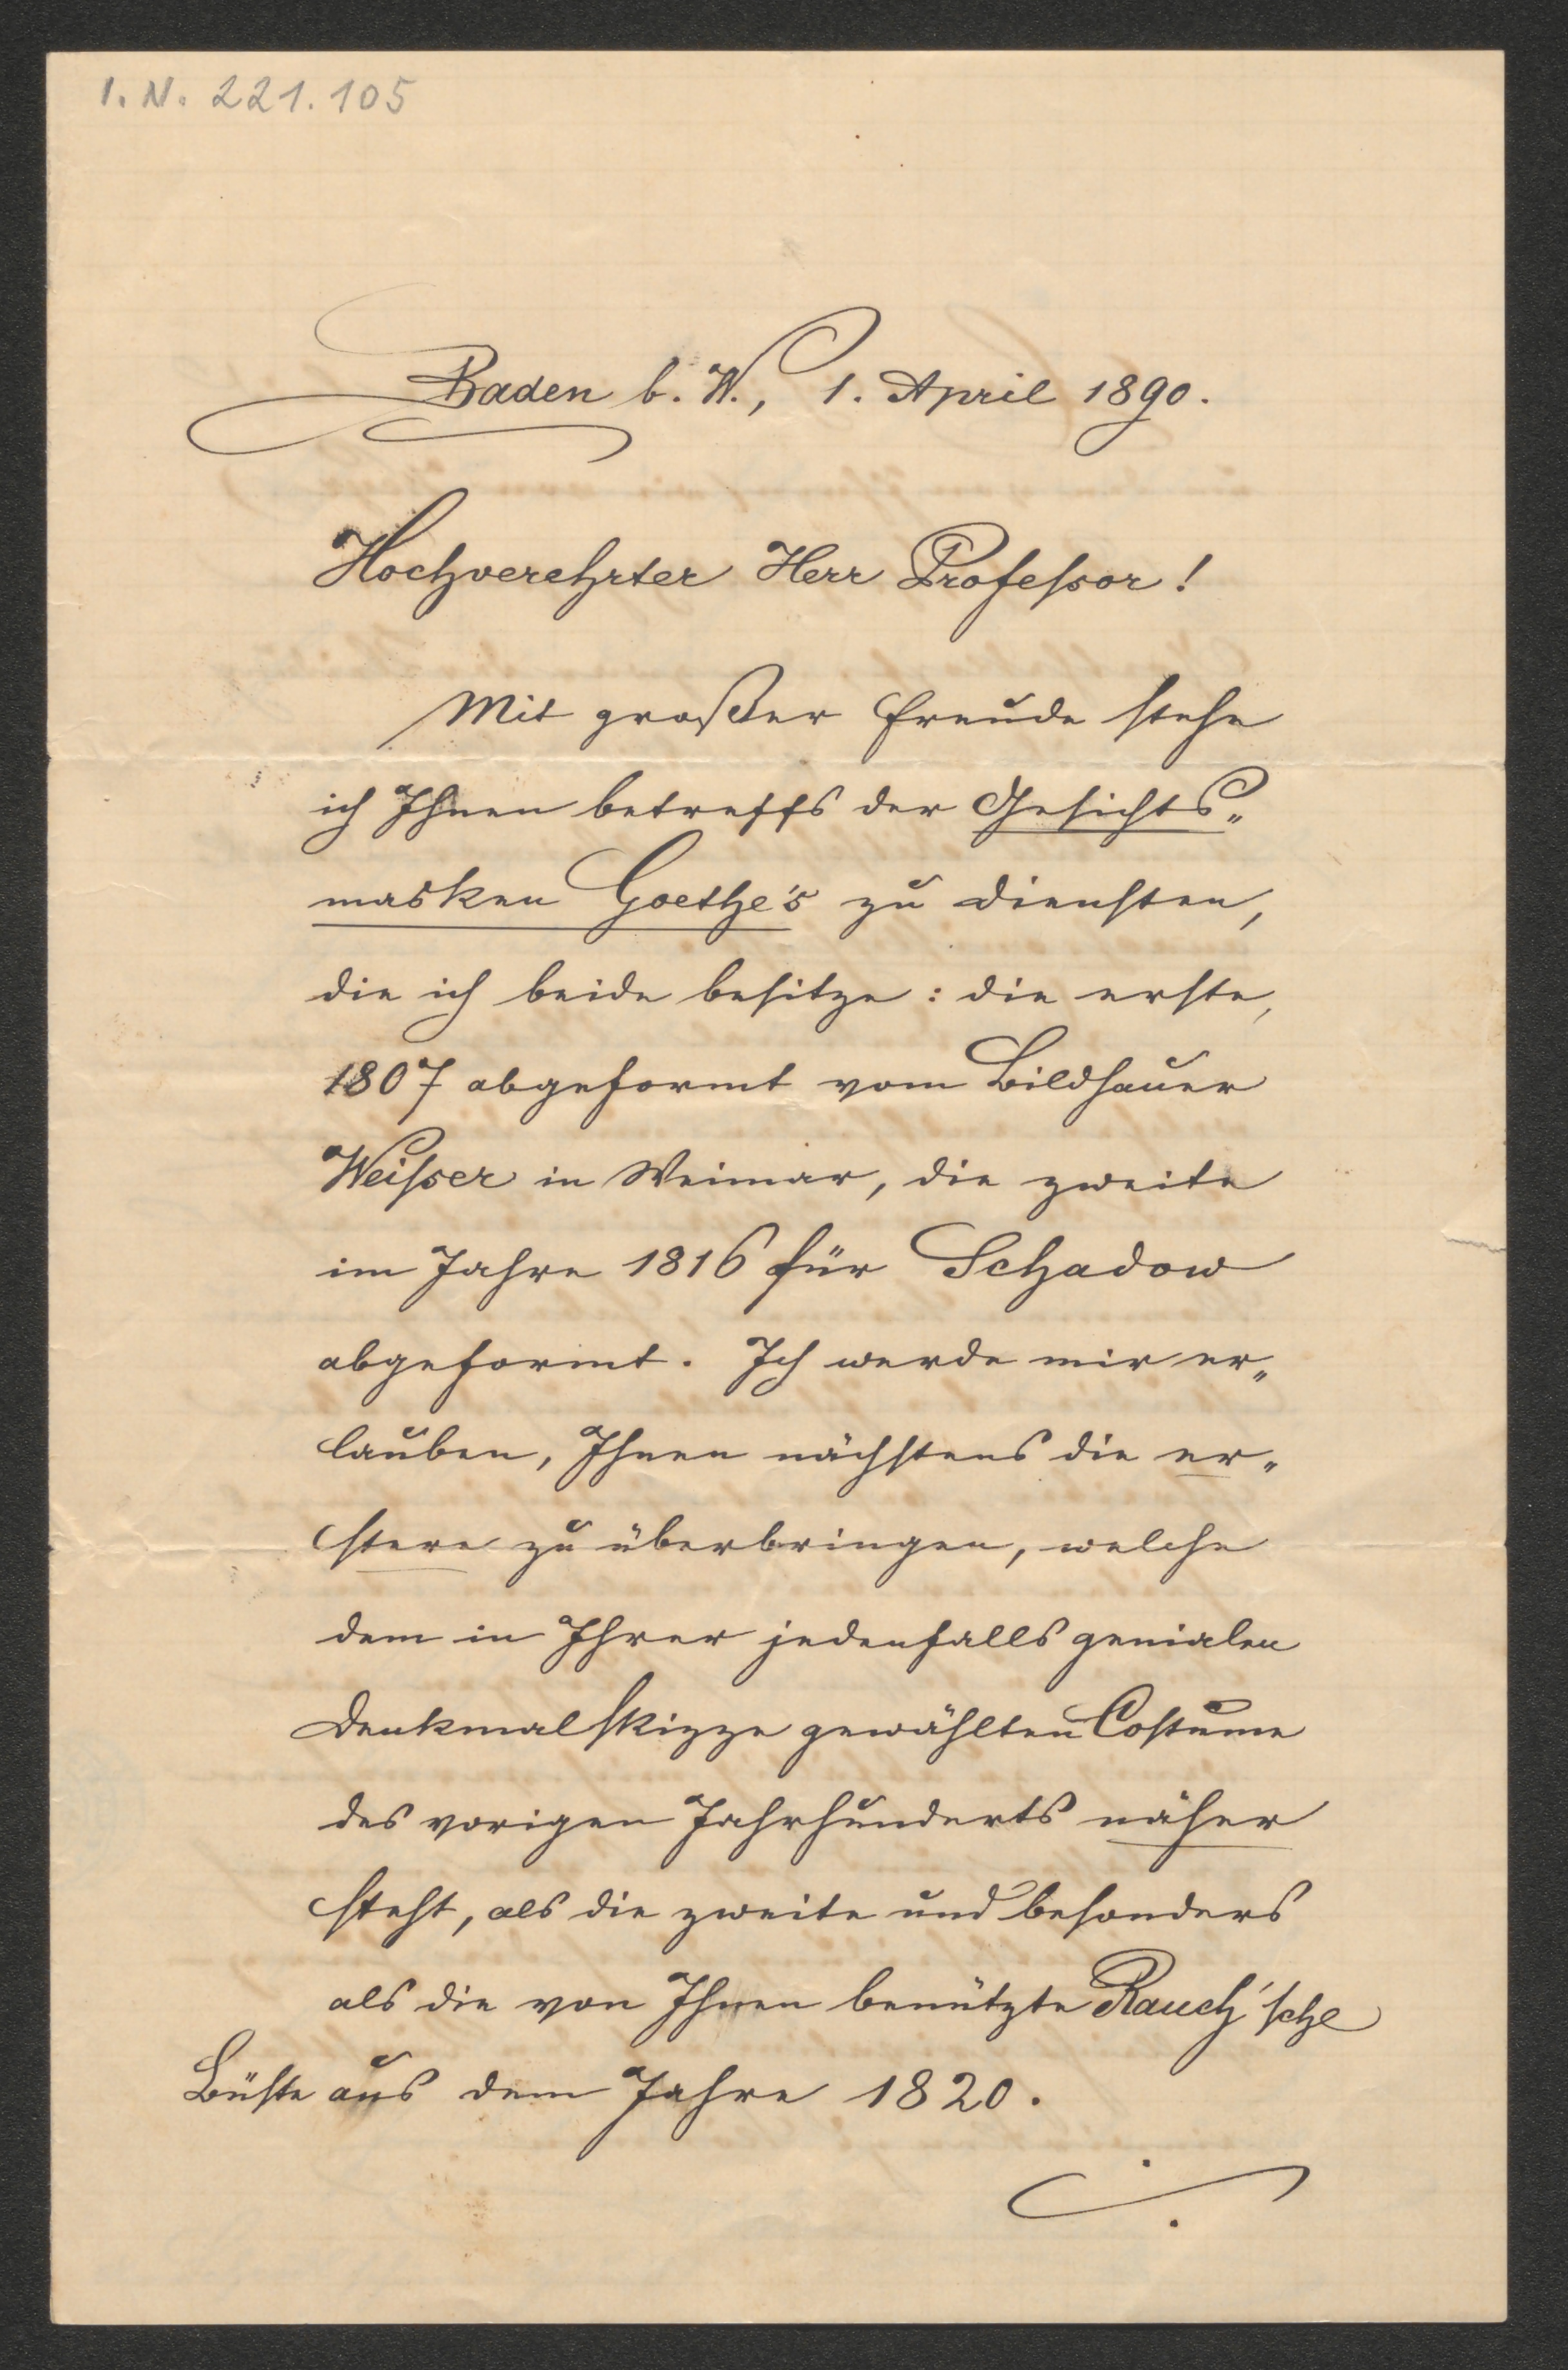 I. N. 221.105
Baden b. W., 1. April 1890.
Hochverehrter Herr Professor!
Mit großer Freude stehe
ich Ihnen betreffs der Gesichts„
masken Goethe's zu Diensten,
die ich beide besitze: die erste,
1807 abgeformt vom Bildhauer
Weisser in Weimar, die zweite
im Jahre 1816 für Schadow
abgeformt. Ich werde mir er„
lauben, Ihnen nächstens die er„
stere zu überbringen, welche
dem in Ihrer jedenfalls genialen
Denkmalskizze gewählten Costume
des vorigen Jahrhunderts näher
steht, als die zweite und besonders
als die von Ihnen benützte Rauch'sche
Büste aus dem Jahre 1820.